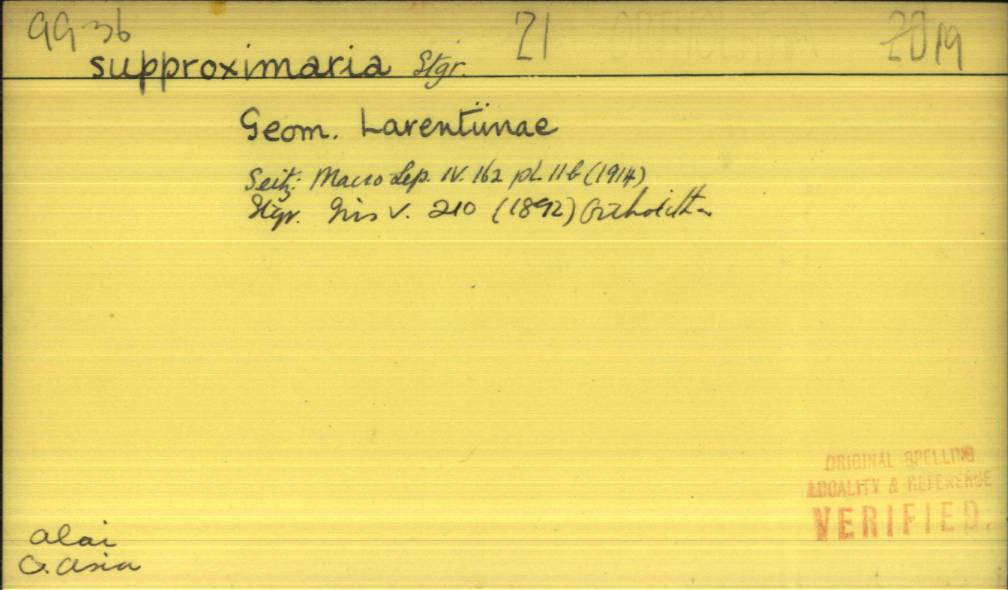 99-36 21 2019
supproximaria Stgr.
Geom. Larentiinae
Seitz: Macro Lep. IV. 162 pl. 11 b (1914)
Stgr. Iris V. 210 (1892) Ortholitha
ORIGINAL SPELLING
LOCALITY & REFERENCE
VERIFIED.
alai
C. asia